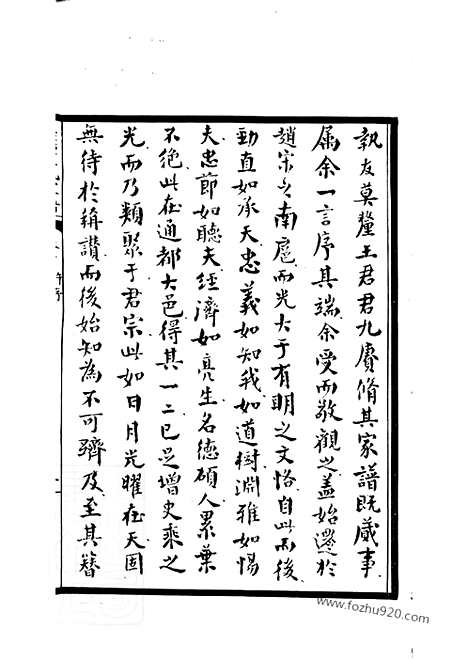 執友莫釐王君君九賡脩其家譜既蕆事
屬余一言序其端余受而敬觀之蓋始遷於
趙宋之南扈而光大于有明之文恪自此而後
勁直如承天忠義如知我如道樹淵雅如惕
夫忠節如聽夫經濟如亮生名德碩人累葉
不絕此在通都大邑得其一二已足增史乘之
光而乃類聚于君宗此如日月光曜在天固
無待於稱讚而後始知為不可躋及至其簪
www.fozhu920.com